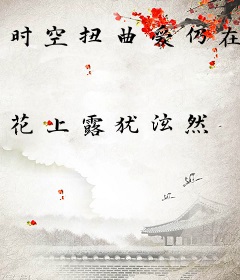 时空扭曲爱仍在
花上露犹泫然